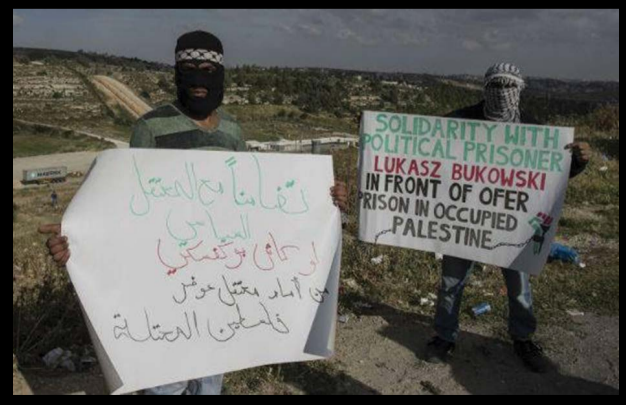 تضامناً مع المعتقل
السياسي
لوكاش بوكفسكي
من أمام معتقل عوفر
فلسطين المحتلة
SOLIDARITY WITH
POLITICAL PRISONER
LUKASZ BUKOWSKI
IN FRONT OF OFER
PRISON IN OCCUPIED
PALESTINE